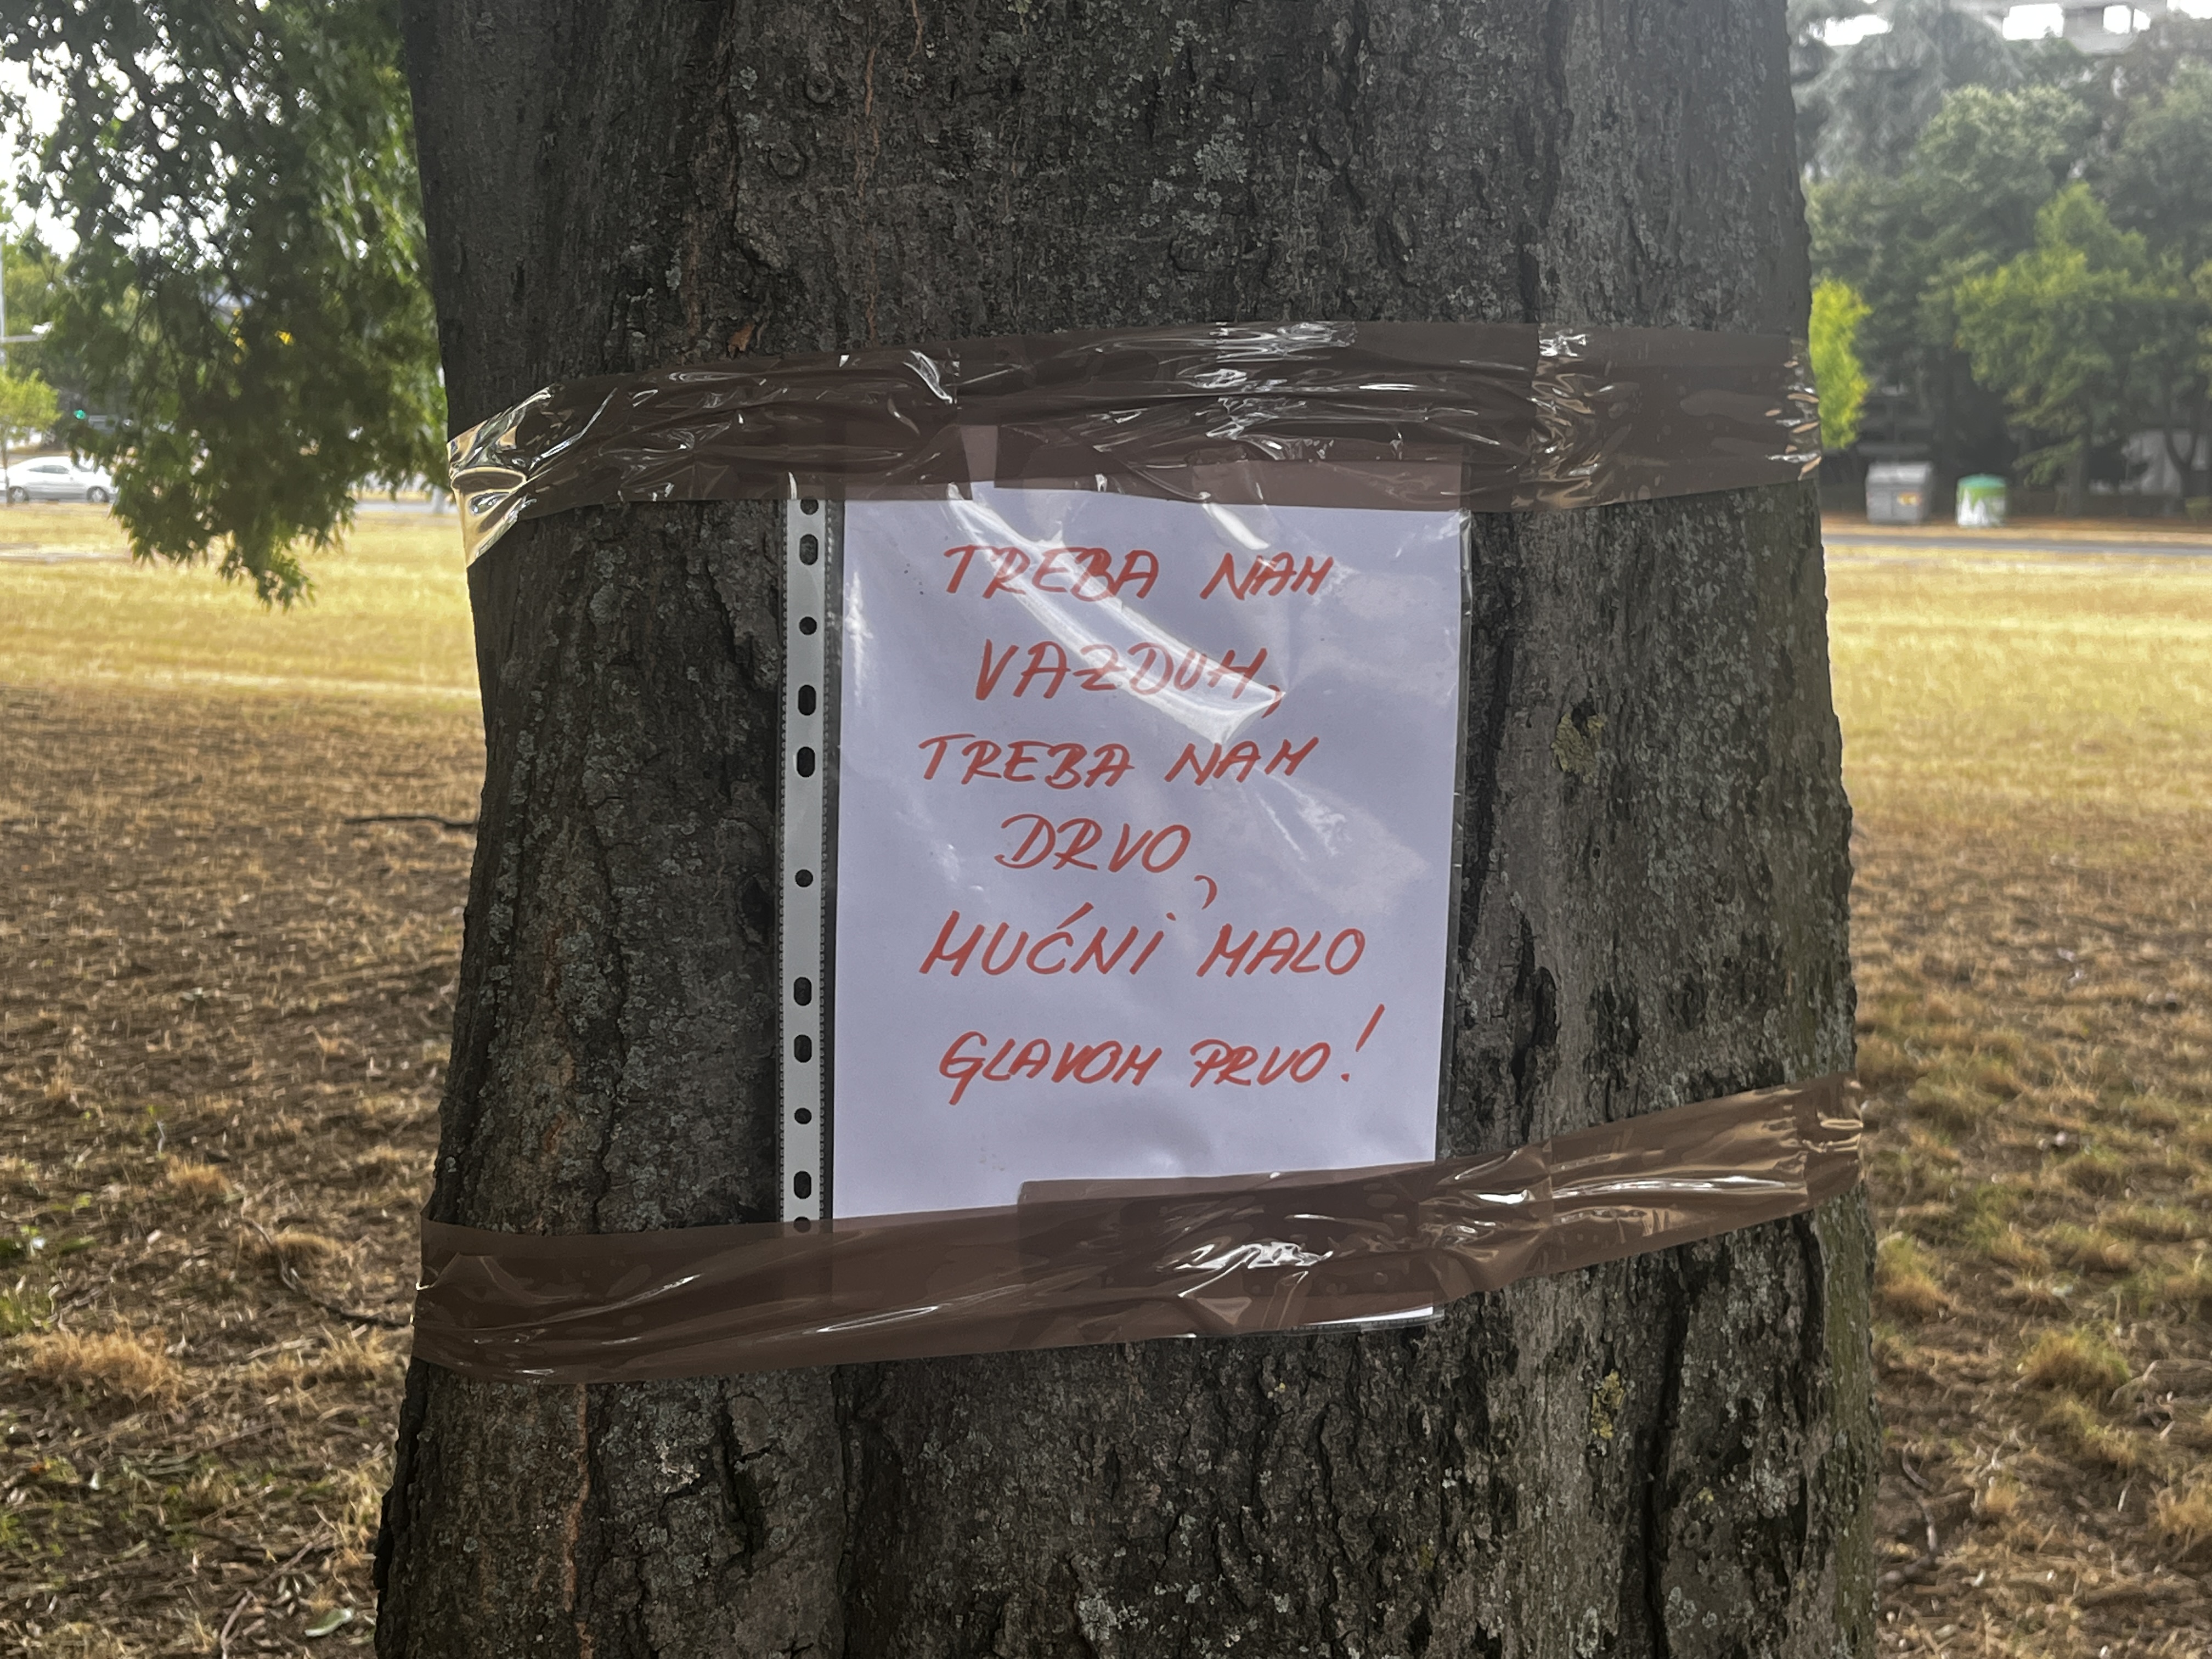 TREBA NAM
VAZDUH,
TREBA NAM
DRVO,
MUĆNI MALO
GLAVOM PRVO!